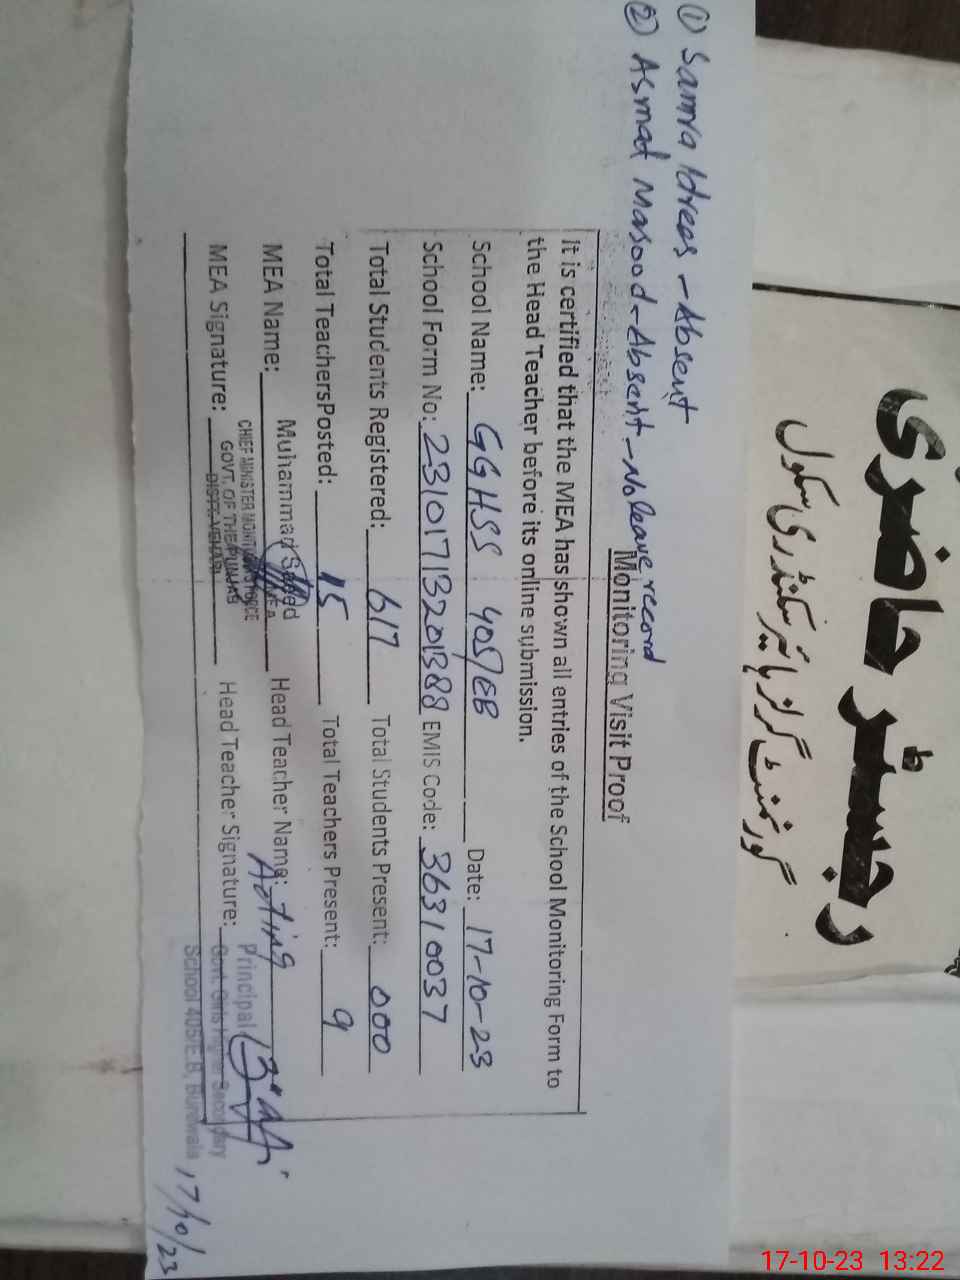 ① Samra Idrees - Absent
② Asmad Masood - Absent - No leave record
Monitoring Visit Proof
It is certified that the MEA has shown all entries of the School Monitoring Form to
the Head Teacher before its online submission.
School Name: GGHSS 405/EB Date: 17-10-23
School Form No: 23101713201388 EMIS Code: 36310037
Total Students Registered: 617 Total Students Present: 000
Total TeachersPosted: 15 Total Teachers Present: 9
MEA Name: Muhammad Saeed Head Teacher Name: Acting
CHIEF MINISTER MONITORING FORCE
GOVT. OF THE PUNJAB
DISTT. VEHARI
MEA Signature: Head Teacher Signature:
Principal
Govt. Girls Higher Secondary
School 405/E.B, Burewala
17/10/23
رجسٹر حاضری
گورنمنٹ گرلز ہائیر سکنڈری سکول
17-10-23 13:22